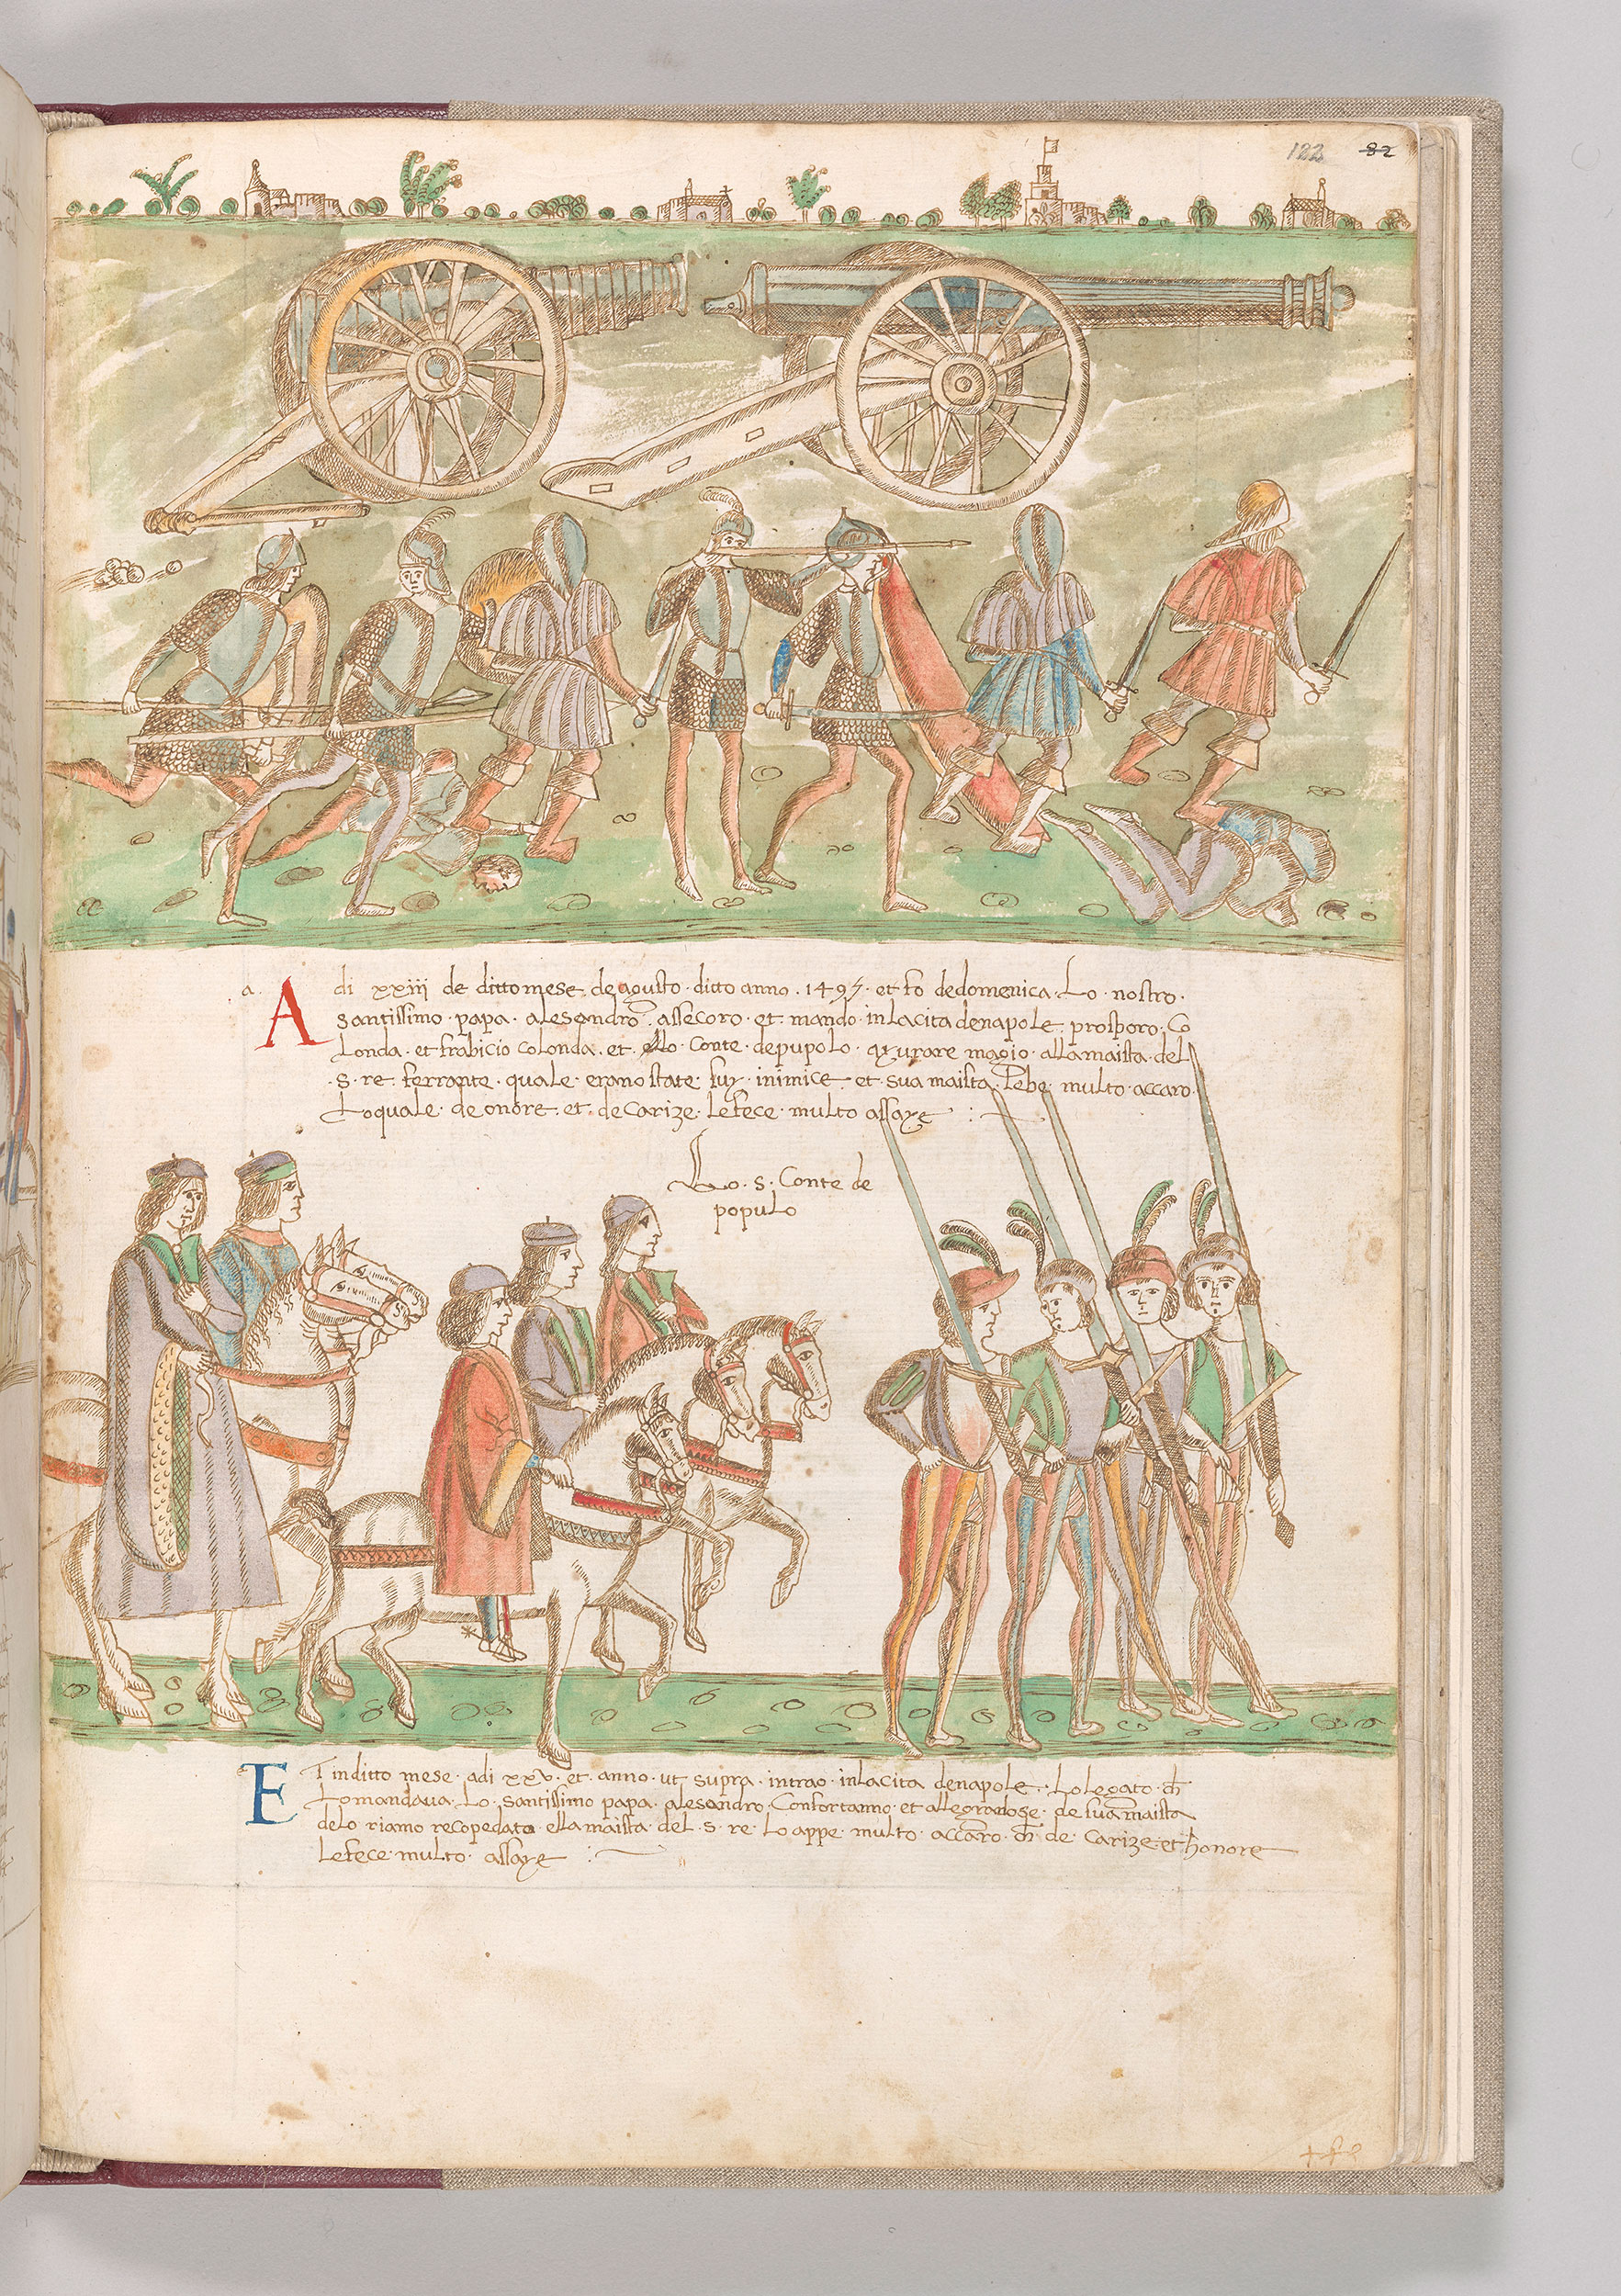 122 82
a.
A di xxiij de ditto mese de agusto · ditto anno · 1495 · et fo de domenica · Lo · nostro ·
santissimo · papa · alesandro · assecoro · et · mando · in lacita de napole prosporo · Co
Londa · et frabicio colonda · et · ello · Conte · de pupolo · a yurare magio · alla maista · del
· s · re ferrante · quale · erano state · suy · inimice · et · sua maista · Lebe · multo · accaro ·
Lo quale · de onore · et · de carize · le fece · multo assaye
Lo · s · Conte de
populo
ET in ditto mese · adi xxv · et · anno · ut supra · intrao · in lacita de napole · Lo legato · ch̄
Lo mandaua · Lo · santissimo papa · alesandro · Confortanno · et allegrandose · de sua maista
de lo riamo recopedato · ella maista · del · s · re · Lo appe · multo · accaro · ch̄ · de · carize · et honore
Le fece · multo · assaye